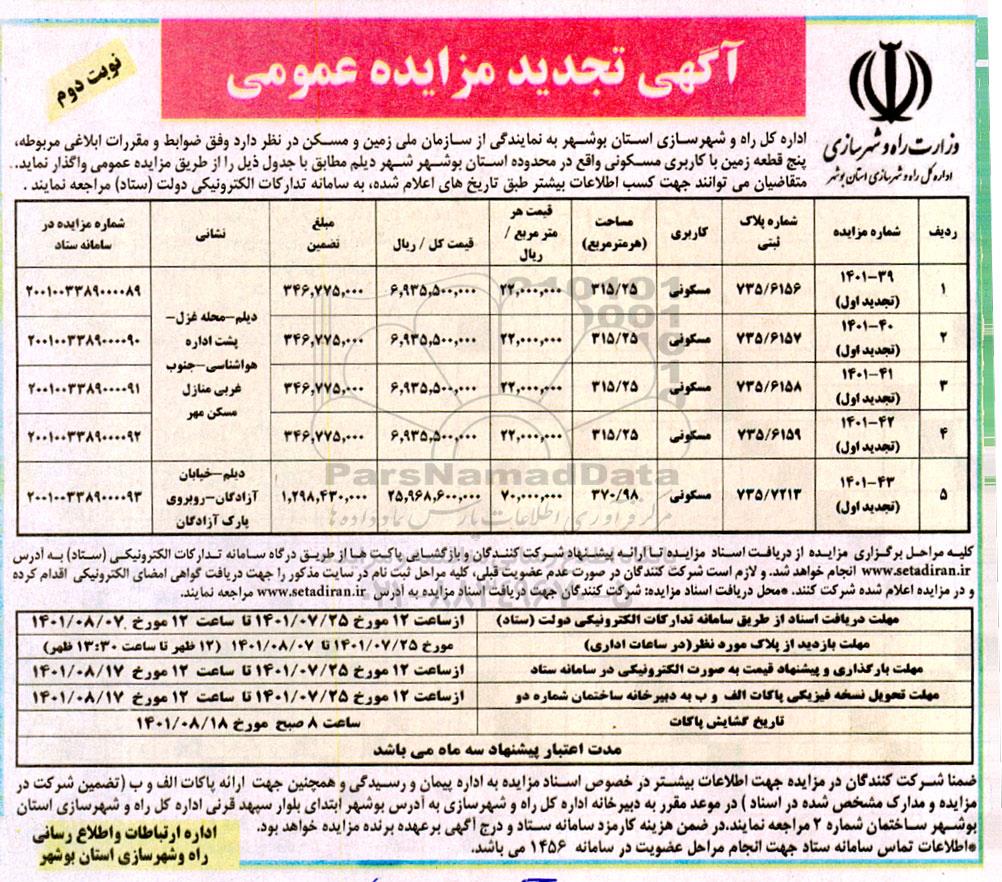 آگهی تجدید مزایده عمومی
نوبت دوم
وزارت راه و شهرسازی
اداره کل راه و شهرسازی استان بوشهر
اداره کل راه و شهرسازی استان بوشهر به نمایندگی از سازمان ملی زمین و مسکن در نظر دارد وفق ضوابط و مقررات ابلاغی مربوطه،
پنج قطعه زمین با کاربری مسکونی واقع در محدوده استان بوشهر شهر دیلم مطابق با جدول ذیل را از طریق مزایده عمومی واگذار نماید..
متقاضیان می توانند جهت کسب اطلاعات بیشتر طبق تاریخ های اعلام شده، به سامانه تدارکات الکترونیکی دولت (ستاد) مراجعه نمایند .
ردیف | شماره مزایده | شماره پلاک ثبتی | کاربری | مساحت (هرمترمربع) | قیمت هر متر مربع / ریال | قیمت کل / ریال | مبلغ تضمین | نشانی | شماره مزایده در سامانه ستاد
۱ | ۱۴۰۱-۳۹ (تجدید اول) | ۷۳۵/۶۱۵۶ | مسکونی | ۳۱۵/۲۵ | ۲۲,۰۰۰,۰۰۰ | ۶,۹۳۵,۵۰۰,۰۰۰ | ۳۴۶,۷۷۵,۰۰۰ | دیلم-محله غزل- پشت اداره هواشناسی-جنوب غربی منازل مسکن مهر | ۲۰۰۱۰۰۳۳۸۹۰۰۰۰۸۹
۲ | ۱۴۰۱-۴۰ (تجدید اول) | ۷۳۵/۶۱۵۷ | مسکونی | ۳۱۵/۲۵ | ۲۲,۰۰۰,۰۰۰ | ۶,۹۳۵,۵۰۰,۰۰۰ | ۳۴۶,۷۷۵,۰۰۰ | ۲۰۰۱۰۰۳۳۸۹۰۰۰۰۹۰
۳ | ۱۴۰۱-۴۱ (تجدید اول) | ۷۳۵/۶۱۵۸ | مسکونی | ۳۱۵/۲۵ | ۲۲,۰۰۰,۰۰۰ | ۶,۹۳۵,۵۰۰,۰۰۰ | ۳۴۶,۷۷۵,۰۰۰ | ۲۰۰۱۰۰۳۳۸۹۰۰۰۰۹۱
۴ | ۱۴۰۱-۴۲ (تجدید اول) | ۷۳۵/۶۱۵۹ | مسکونی | ۳۱۵/۲۵ | ۲۲,۰۰۰,۰۰۰ | ۶,۹۳۵,۵۰۰,۰۰۰ | ۳۴۶,۷۷۵,۰۰۰ | ۲۰۰۱۰۰۳۳۸۹۰۰۰۰۹۲
۵ | ۱۴۰۱-۴۳ (تجدید اول) | ۷۳۵/۷۲۱۳ | مسکونی | ۳۷۰/۹۸ | ۷۰,۰۰۰,۰۰۰ | ۲۵,۹۶۸,۶۰۰,۰۰۰ | ۱,۲۹۸,۴۳۰,۰۰۰ | دیلم-خیابان آزادگان-روبروی پارک آزادگان | ۲۰۰۱۰۰۳۳۸۹۰۰۰۰۹۳
ParsNamadData
کلیه مراحل برگزاری مزایده از دریافت اسناد مزایده تا ارائه پیشنهاد شرکت کنندگان و بازگشایی پاکت ها از طریق درگاه سامانه تدارکات الکترونیکی (ستاد) به آدرس
www.setadiran.ir انجام خواهد شد. و لازم است شرکت کنندگان در صورت عدم عضویت قبلی، کلیه مراحل ثبت نام در سایت مذکور را جهت دریافت گواهی امضای الکترونیکی اقدام کرده
و در مزایده اعلام شده شرکت کنند. *محل دریافت اسناد مزایده: شرکت کنندگان جهت دریافت اسناد مزایده به آدرس www.setadiran.ir مراجعه نمایند.
مهلت دریافت اسناد از طریق سامانه تدارکات الکترونیکی دولت (ستاد) | از ساعت ۱۲ مورخ ۱۴۰۱/۰۷/۲۵ تا ساعت ۱۲ مورخ ۱۴۰۱/۰۸/۰۷
مهلت بازدید از پلاک مورد نظر(در ساعات اداری) | مورخ ۱۴۰۱/۰۷/۲۵ تا ۱۴۰۱/۰۸/۰۷ (۱۲ ظهر تا ساعت ۱۳:۳۰ ظهر)
مهلت بارگذاری و پیشنهاد قیمت به صورت الکترونیکی در سامانه ستاد | از ساعت ۱۲ مورخ ۱۴۰۱/۰۷/۲۵ تا ساعت ۱۲ مورخ ۱۴۰۱/۰۸/۱۷
مهلت تحویل نسخه فیزیکی پاکات الف و ب به دبیرخانه ساختمان شماره دو | از ساعت ۱۲ مورخ ۱۴۰۱/۰۷/۲۵ تا ساعت ۱۲ مورخ ۱۴۰۱/۰۸/۱۷
تاریخ گشایش پاکات | ساعت ۸ صبح مورخ ۱۴۰۱/۰۸/۱۸
مدت اعتبار پیشنهاد سه ماه می باشد
ضمنا شرکت کنندگان در مزایده جهت اطلاعات بیشتر در خصوص اسناد مزایده به اداره پیمان و رسیدگی و همچنین جهت ارائه پاکات الف و ب (تضمین شرکت در
مزایده و مدارک مشخص شده در اسناد ) در موعد مقرر به دبیرخانه اداره کل راه و شهرسازی به آدرس بوشهر ابتدای بلوار سپهبد قرنی اداره کل راه و شهرسازی استان
بوشهر ساختمان شماره ۲ مراجعه نمایند.در ضمن هزینه کارمزد سامانه ستاد و درج آگهی برعهده برنده مزایده خواهد بود.
*اطلاعات تماس سامانه ستاد جهت انجام مراحل عضویت در سامانه ۱۴۵۶ می باشد.
اداره ارتباطات و اطلاع رسانی
راه وشهرسازی استان بوشهر